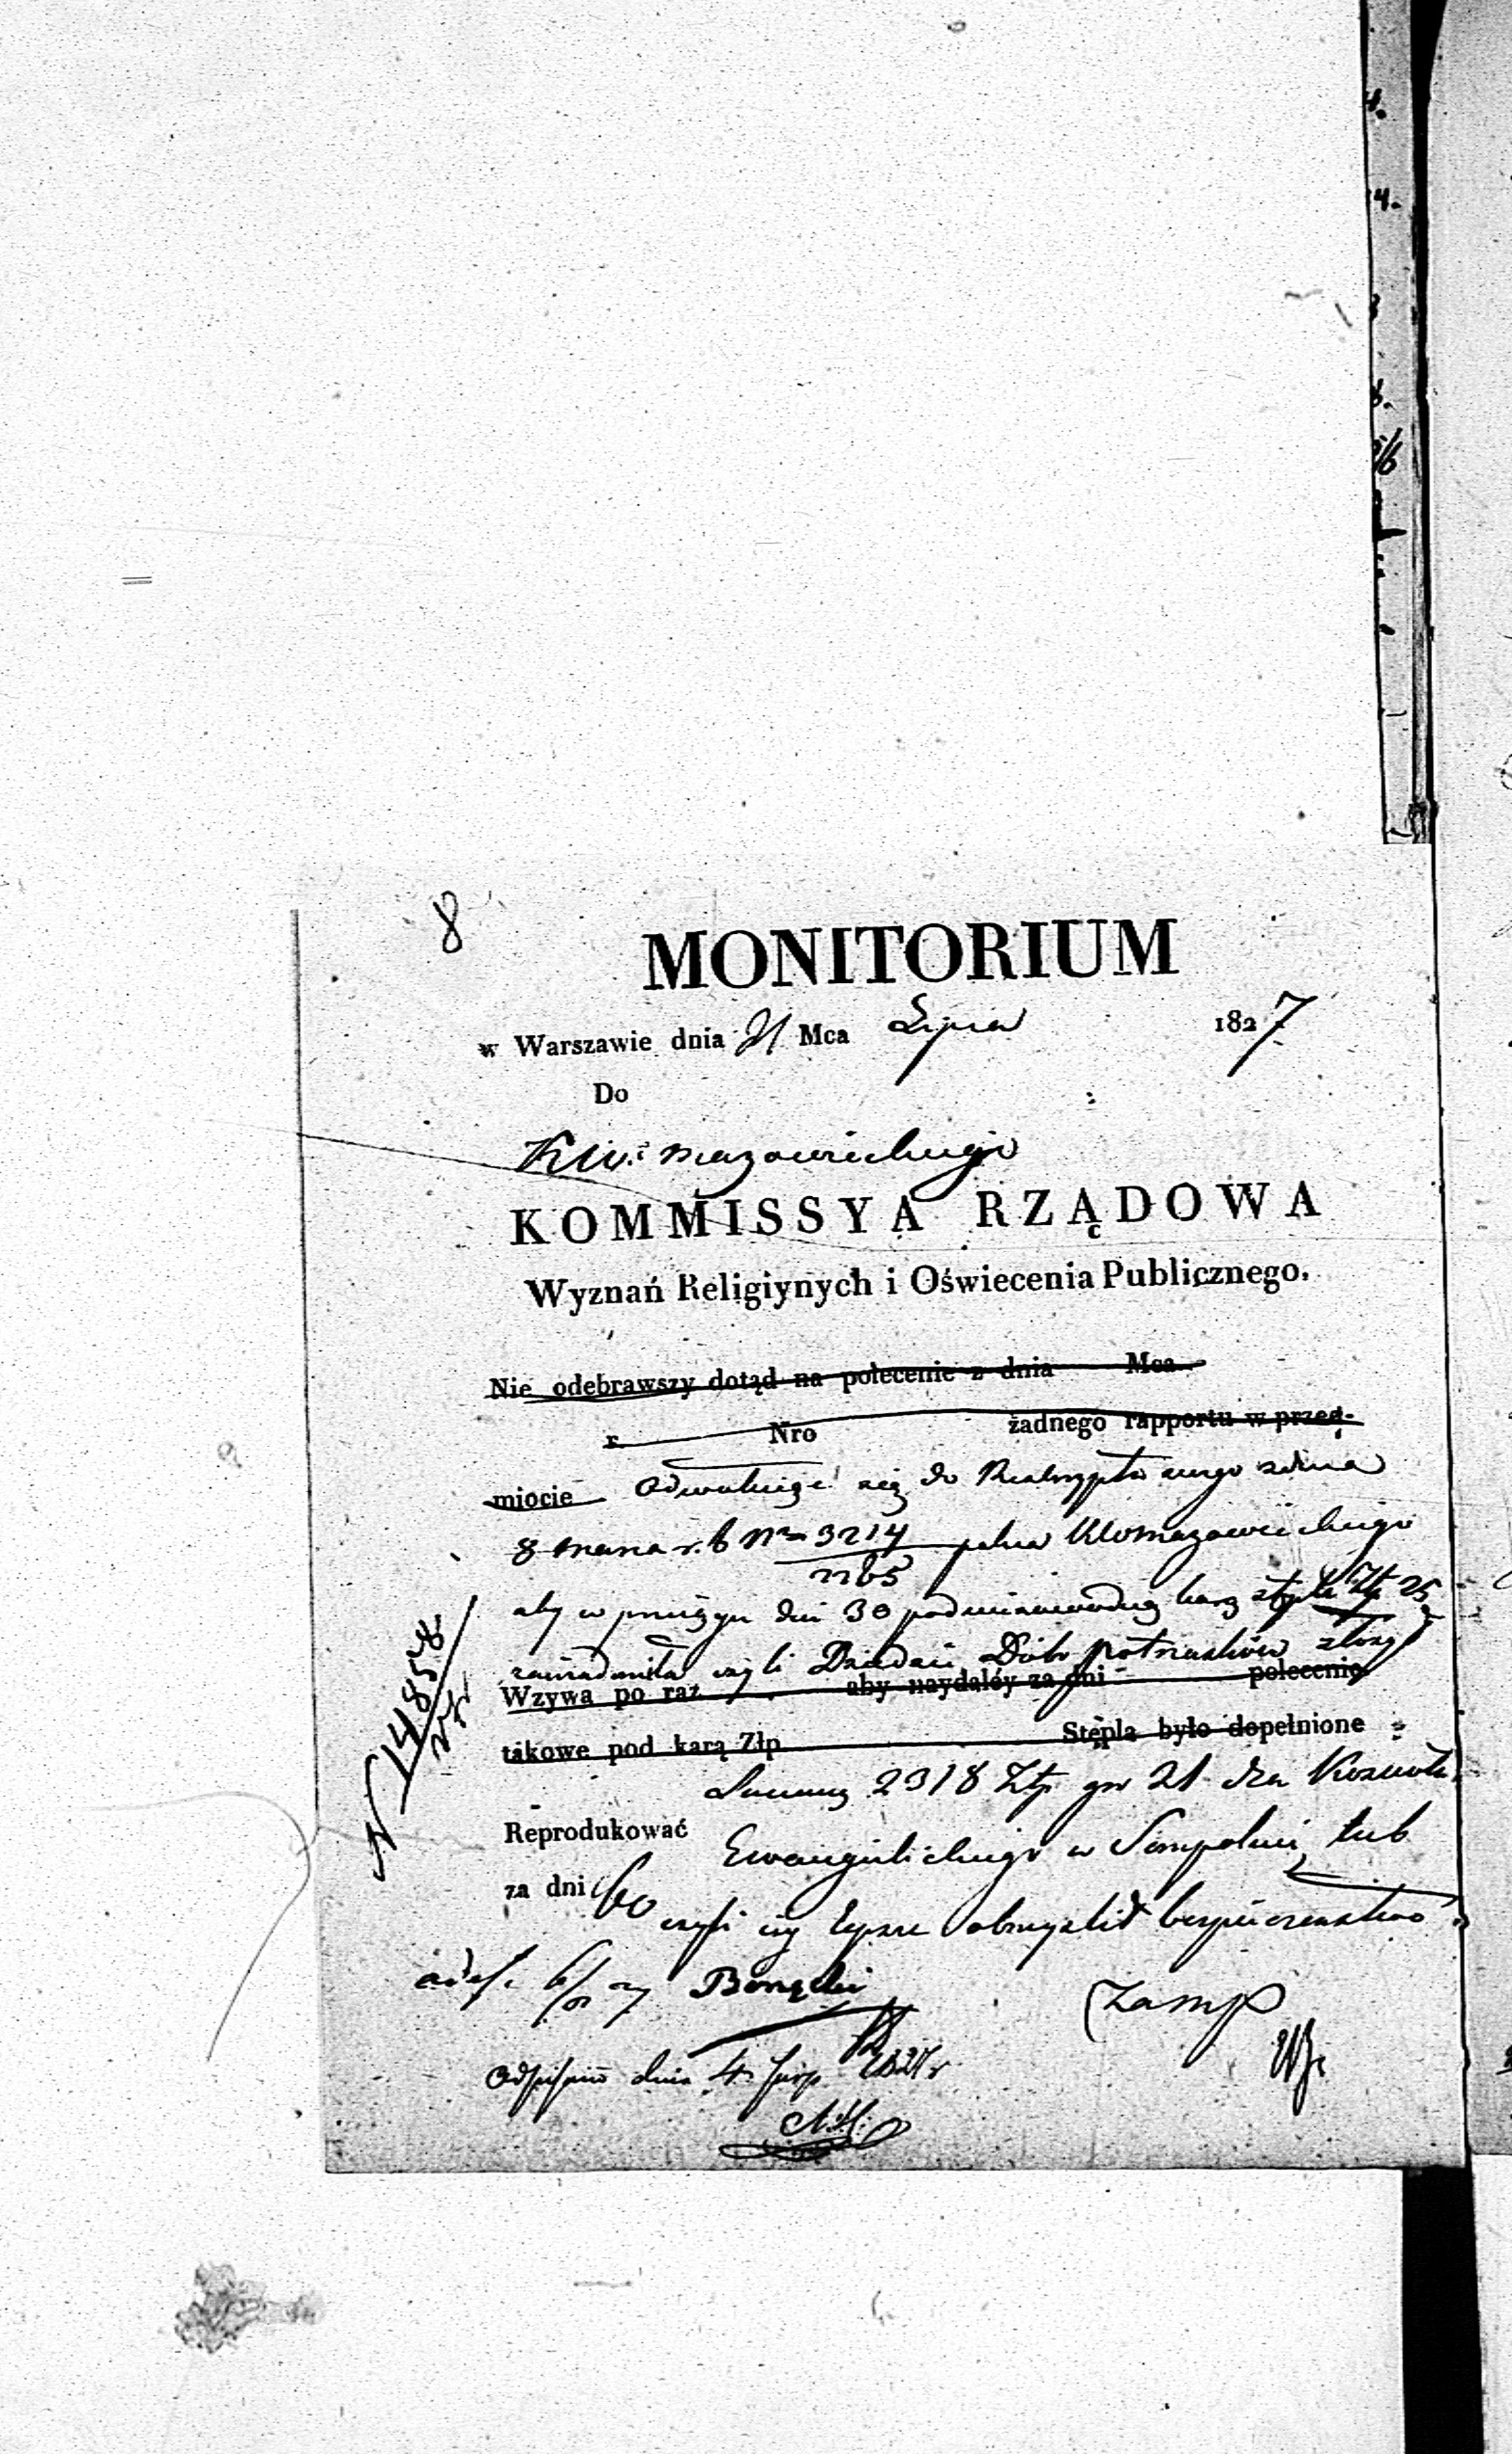 8
MONITORIUM
w Warszawie dnia 21 Mca Lipca 1827
Do
KW: Mazowieckiego
KOMMISSYA RZĄDOWA
Wyznań Religiynych i Oświecenia Publicznego.
Nie odebrawszy dotąd na polecenie z dnia Mca
r. Nro żadnego rapportu w przed-
miocie Odwołując się do Reskryptu swego z dnia
8 marca r. b. Nro 3214 Mazowieckiego
2265
aby w przeciągu dni 30 pod karą stępla Złp 25
zawiadomiła czyli Dziedzic Dóbr złożył
Wzywa po raz aby naydaléy za dni polecenie
takowe pod karą Złp. Stępla było dopełnione
N 14858
Summę 2318 Złp gr 21 dla Kościoła
Reprodukować
Ewangelickiego w Sempolnie, lub
za dni 60
czyli iey lepsze obmyślił bezpieczeństwo
odpisano dnia 4 Sierp. 1827 r